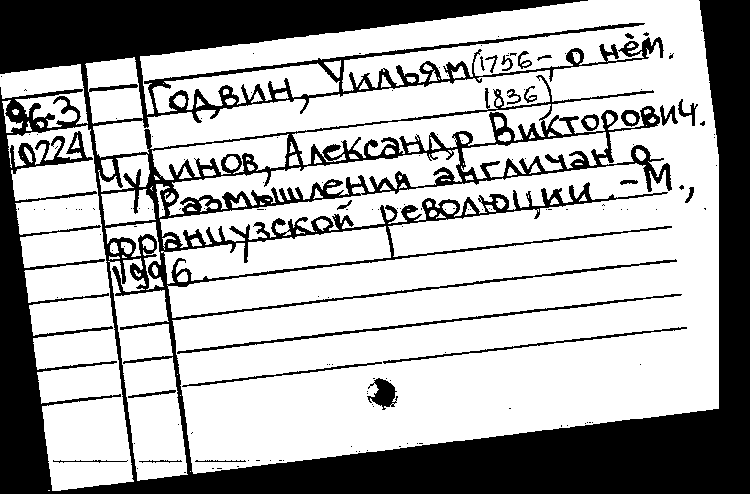 Годвин, Уильям (1756-1836), о нём.
96-3
10224
Чудинов, Александр Викторович.
Размышления англичан о
французской революции. - М.,
1996.